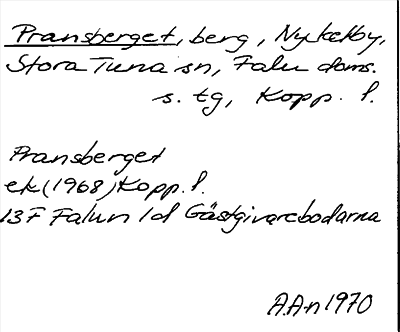 Pransberget, berg, Nyckelby,
Stora Tuna sn, Falu doms.
s. tg, Kopp. l.
Pransberget
ek (1968) Kopp. l.
13F Falun 1d Gästgivarebodarna
A.A-n 1970